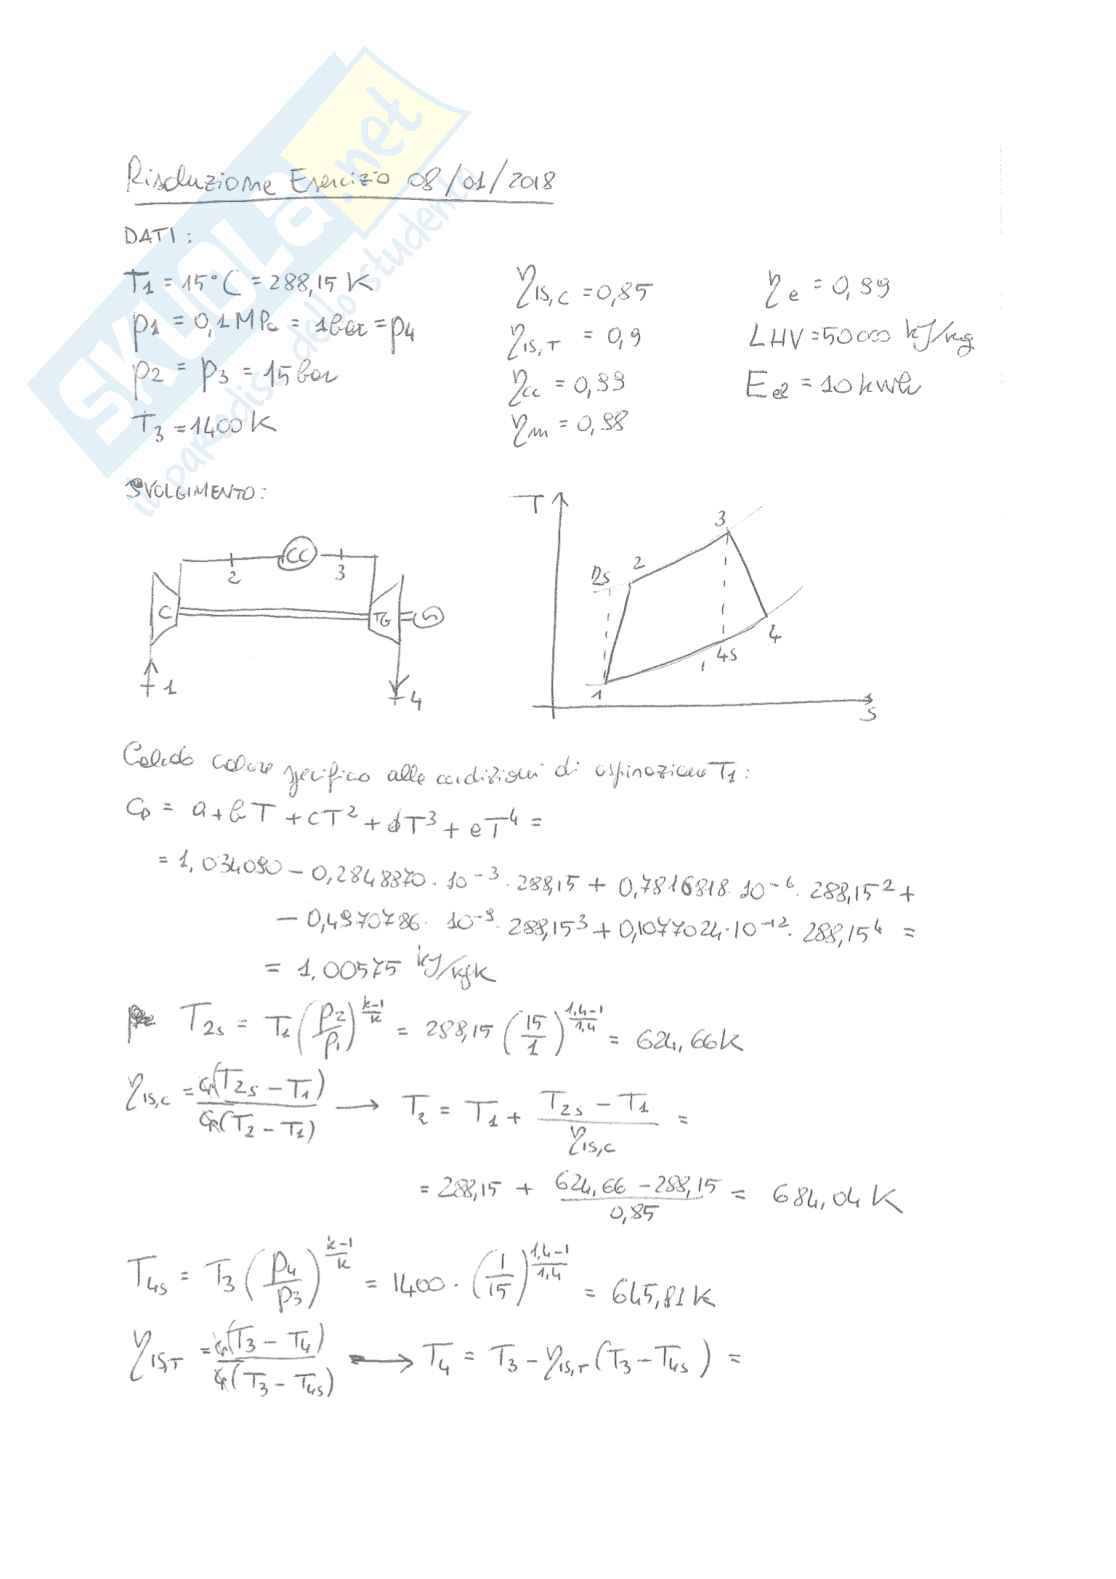 SKUOLA.net
il paradiso dello studente
Risoluzione Esercizio 08/01/2018
DATI:
T1 = 15°C = 288,15 K
p1 = 0,1 MPa = 1 bar = p4
p2 = p3 = 15 bar
T3 = 1400 K
η is,c = 0,85
η is,T = 0,9
ηcc = 0,99
ηm = 0,98
ηe = 0,99
LHV = 50000 kJ/kg
Eel = 10 kWh
SVOLGIMENTO:
CC
2 3
C TG G
1 4
T
3
2s 2
4s 4
1
S
Calcolo calore specifico alle condizioni di aspirazione T1:
cp = a + bT + cT² + dT³ + eT⁴ =
= 1,034090 - 0,2848870 · 10⁻³ · 288,15 + 0,7816818 · 10⁻⁶ · 288,15² +
- 0,4970786 · 10⁻⁹ · 288,15³ + 0,1077024 · 10⁻¹² · 288,15⁴ =
= 1,00575 kJ/kgK
T2s = T1 (p2/p1)^((k-1)/k) = 288,15 (15/1)^((1,4-1)/1,4) = 624,66 K
η is,c = cp(T2s - T1) / cp(T2 - T1) → T2 = T1 + (T2s - T1)/η is,c =
= 288,15 + (624,66 - 288,15)/0,85 = 684,04 K
T4s = T3 (p4/p3)^((k-1)/k) = 1400 · (1/15)^((1,4-1)/1,4) = 645,81 K
η is,T = cp(T3 - T4) / cp(T3 - T4s) → T4 = T3 - η is,T (T3 - T4s) =